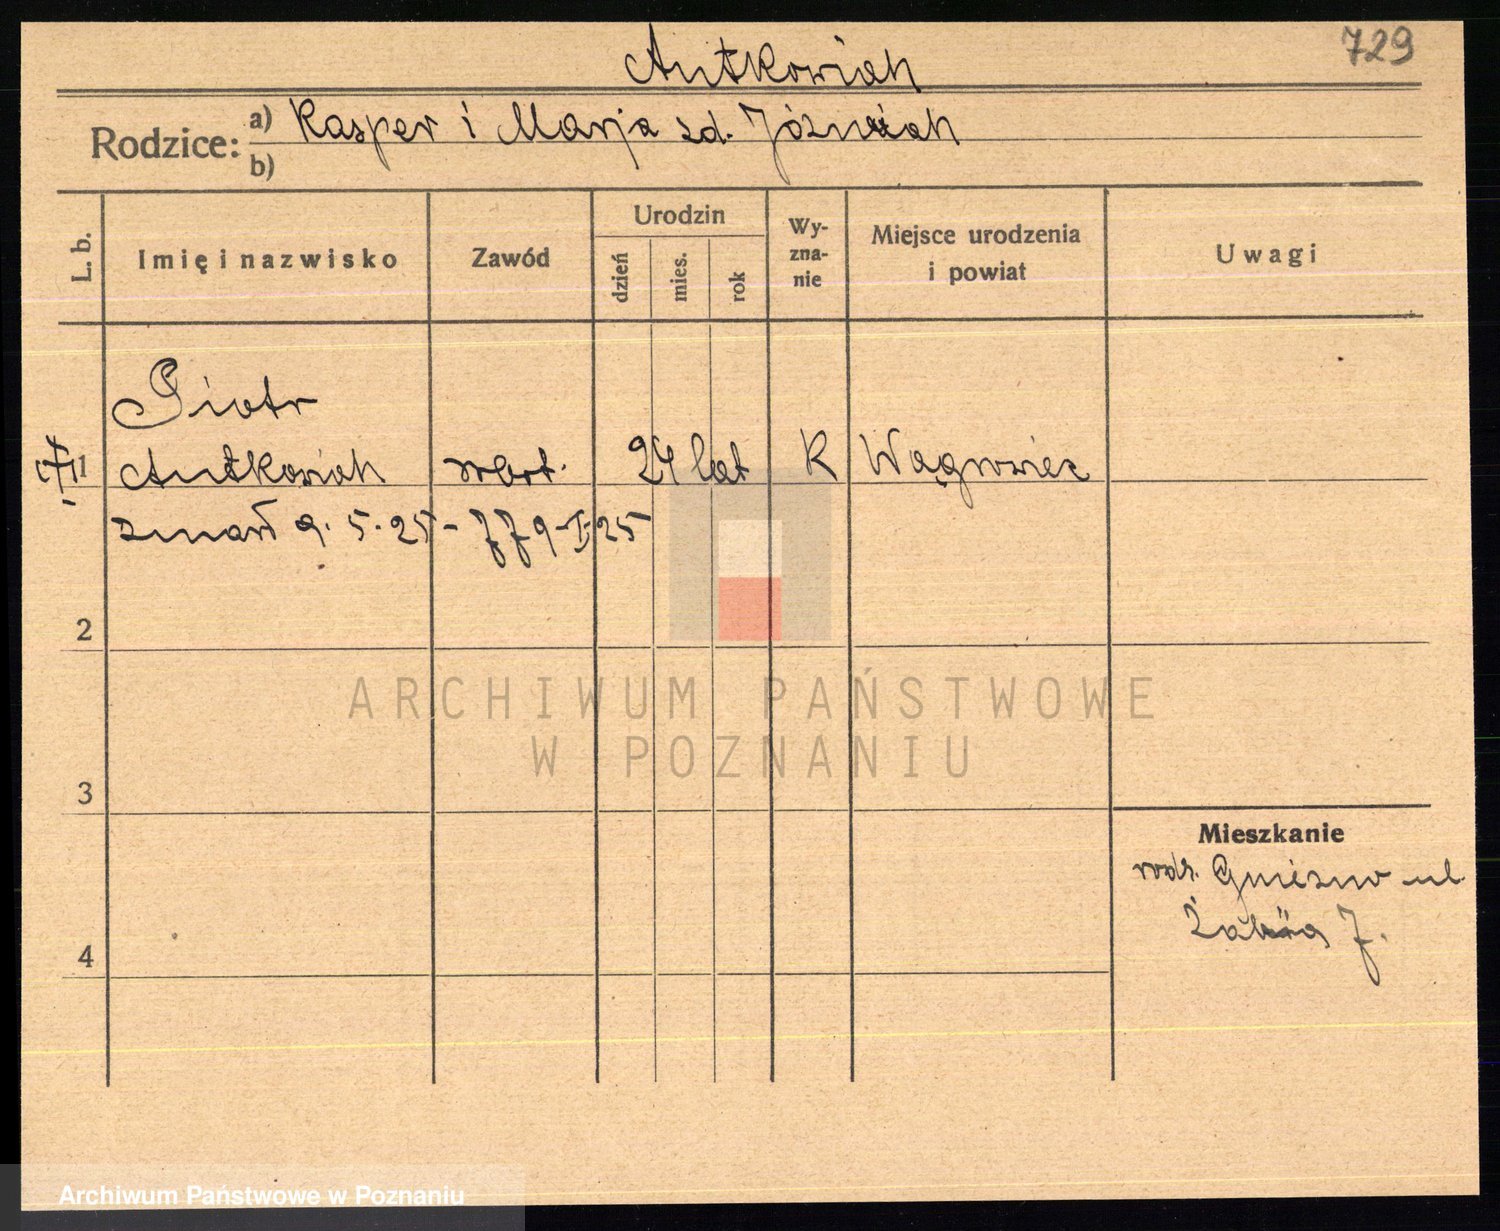 729
Antkowiak
Rodzice: a) Kasper i Marja zd. Jóźwiak
b)
L. b. Imię i nazwisko Zawód Urodzin dzień mies. rok Wy-zna-nie Miejsce urodzenia i powiat Uwagi
Piotr
1 Antkowiak 24 lat K Wągrowiec
zmarł 9. 5. 25 - 779-I-25
2
ARCHIWUM PAŃSTWOWE
W POZNANIU
3
Mieszkanie
rodz. Gniezno ul.
7.
4
Archiwum Państwowe w Poznaniu